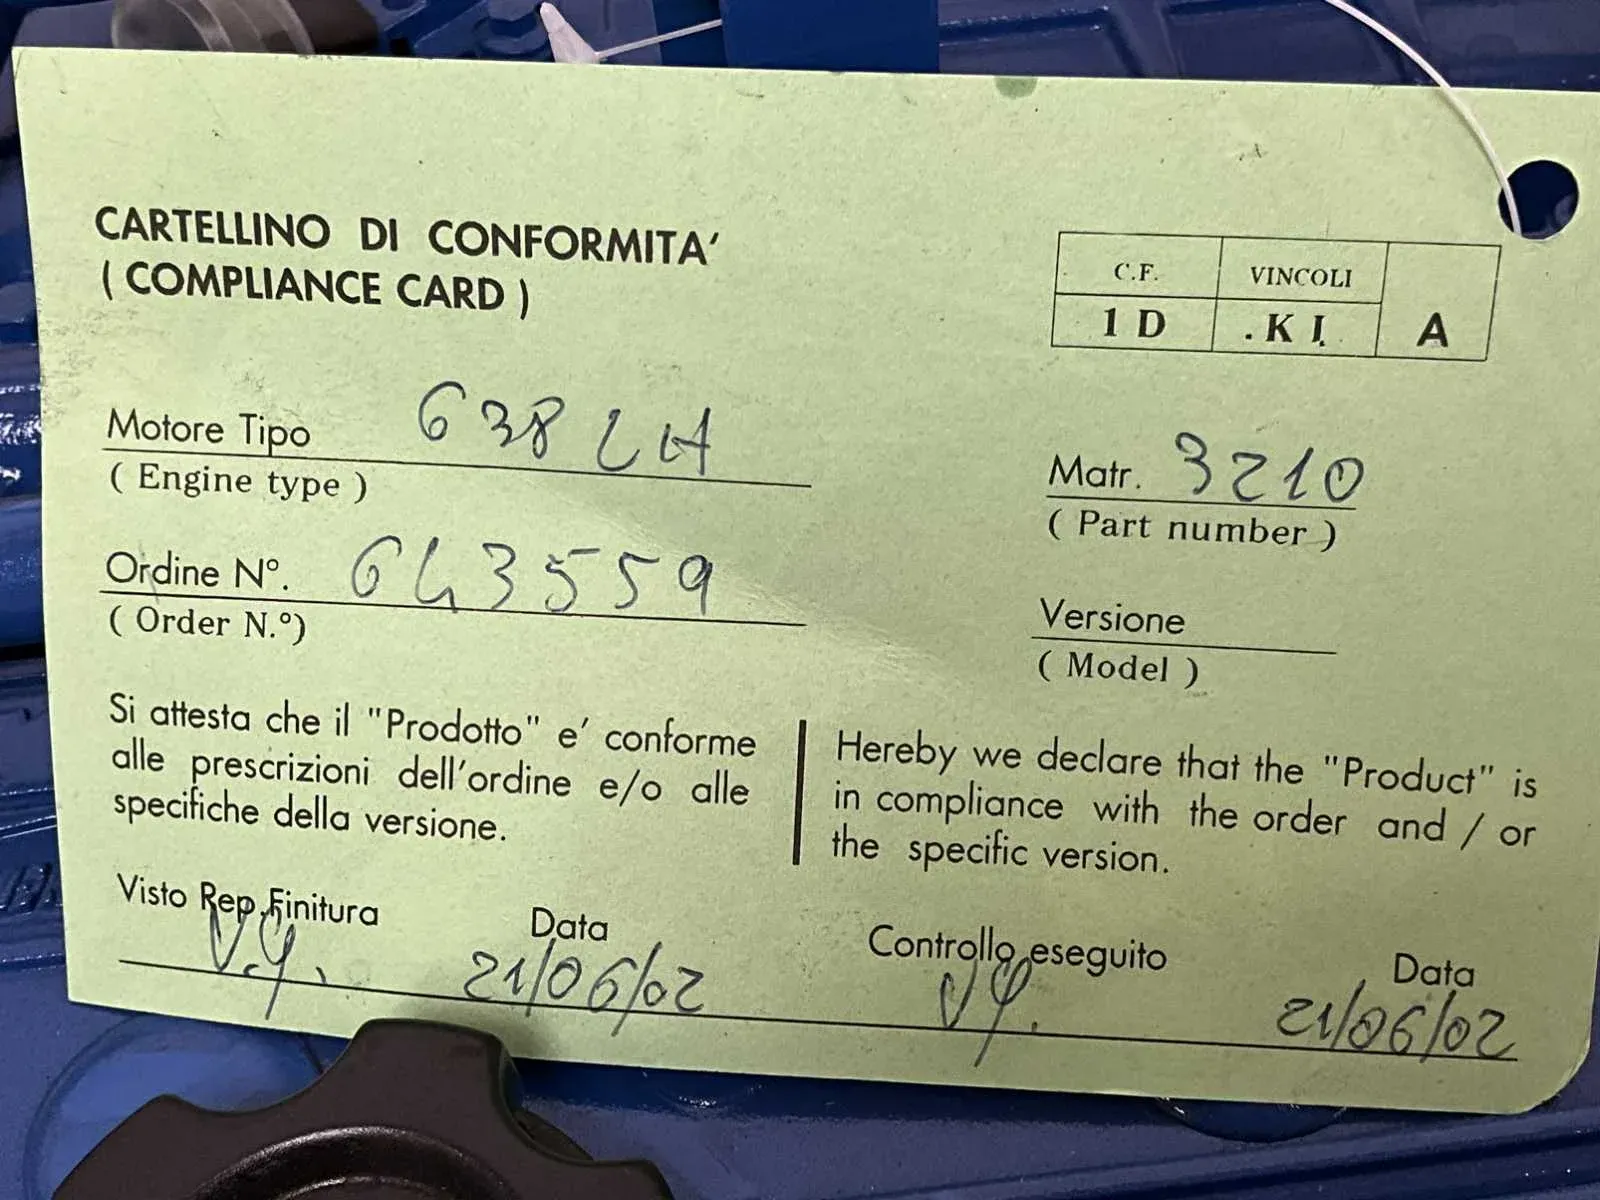 CARTELLINO DI CONFORMITA'
( COMPLIANCE CARD )
C.F. VINCOLI
1 D .K I. A
Motore Tipo 638 LH
( Engine type )
Matr. 3210
( Part number )
Ordine N°. 643559
( Order N.°)
Versione
( Model )
Si attesta che il "Prodotto" e' conforme
alle prescrizioni dell'ordine e/o alle
specifiche della versione.
Hereby we declare that the "Product" is
in compliance with the order and / or
the specific version.
Visto Rep.Finitura Data Controllo eseguito Data
21/06/02 21/06/02